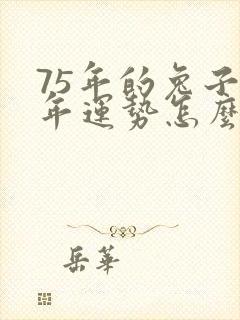 75年的兔子
年運势怎麼
岳華